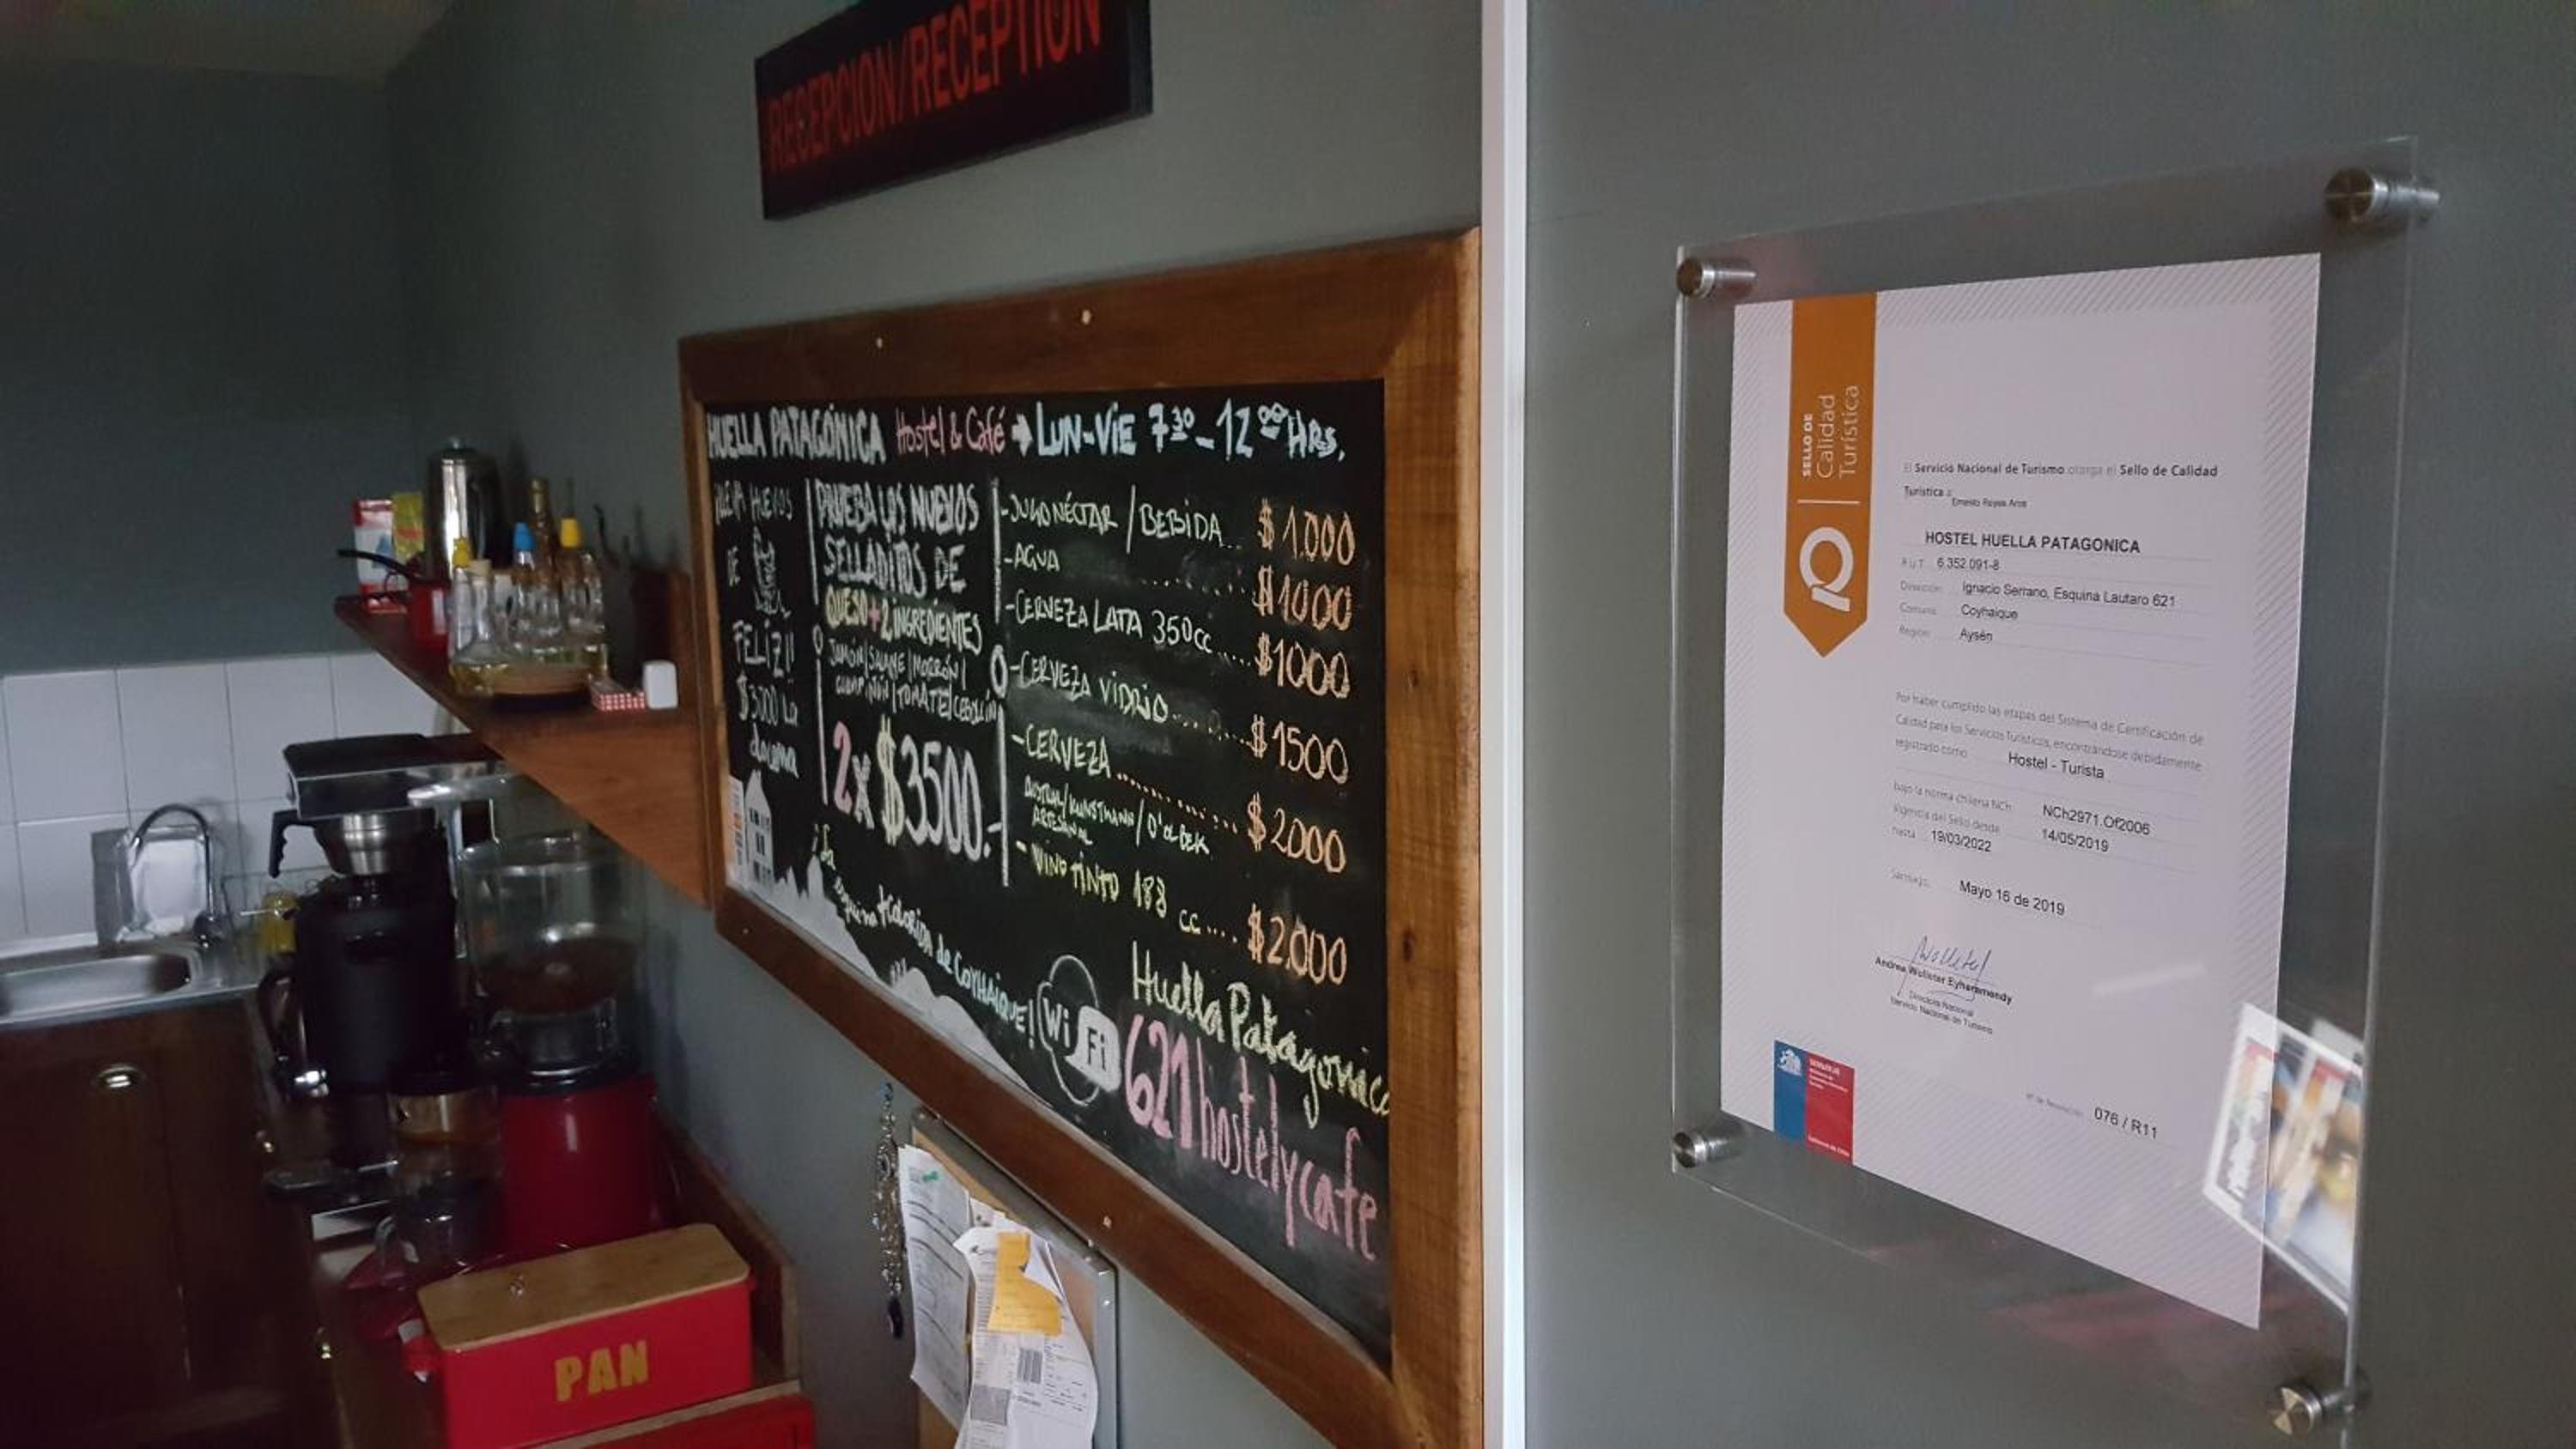 RECEPCION/RECEPTION
HUELLA PATAGÓNICA Hostel & Café → LUN-VIE 7³⁰-12⁰⁰ HRS.
HUEVOS
DE
FELIZ!!
$3000 La
docena
PRUEBA LOS NUEVOS
SELLADITOS DE
QUESO+2 INGREDIENTES
JAMÓN/SALAME/MORRÓN/
CHAMPIÑÓN/TOMATE/CEBOLLÍN
2x $3500.-
-JUGO NÉCTAR/BEBIDA.. $1.000
-AGUA ...... $1000
-CERVEZA LATA 350cc..... $1000
-CERVEZA VIDRIO....... $1500
-CERVEZA............. $2000
AUSTRAL/KUNSTMANN/D'OLBEK
ARTESANAL
-VINO TINTO 188 cc.... $2.000
¡La esquina +colorida de COYHAIQUE!
Wi Fi
Huella Patagonica
621hostelycafe
PAN
SELLO DE
Calidad
Turística
El Servicio Nacional de Turismo otorga el Sello de Calidad
Turística a
Ernesto Reyes Aros
HOSTEL HUELLA PATAGONICA
R.U.T. 6.352.091-8
Dirección: Ignacio Serrano, Esquina Lautaro 621
Comuna: Coyhaique
Región: Aysén
Por haber cumplido las etapas del Sistema de Certificación de
Calidad para los Servicios Turísticos, encontrándose debidamente
registrado como: Hostel - Turista
bajo la norma chilena NCh: NCh2971.Of2006
Vigencia del Sello desde 14/05/2019
hasta 19/03/2022
Santiago, Mayo 16 de 2019
Andrea Wolleter Eyheramendy
Directora Nacional
Servicio Nacional de Turismo
076 / R11